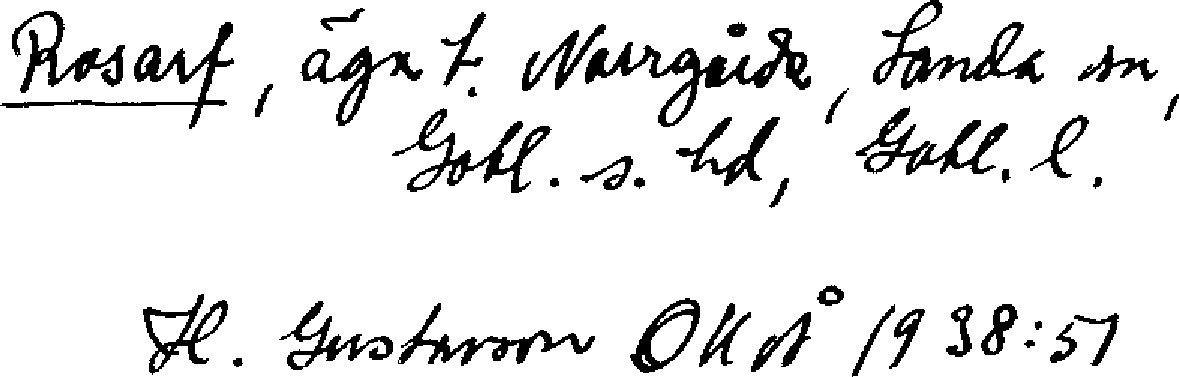 Rosarf, ägn t. Norrgårde, Sanda sn,
Gotl. s. hd, Gotl. l.
H. Gustavson OKvå 1938:51